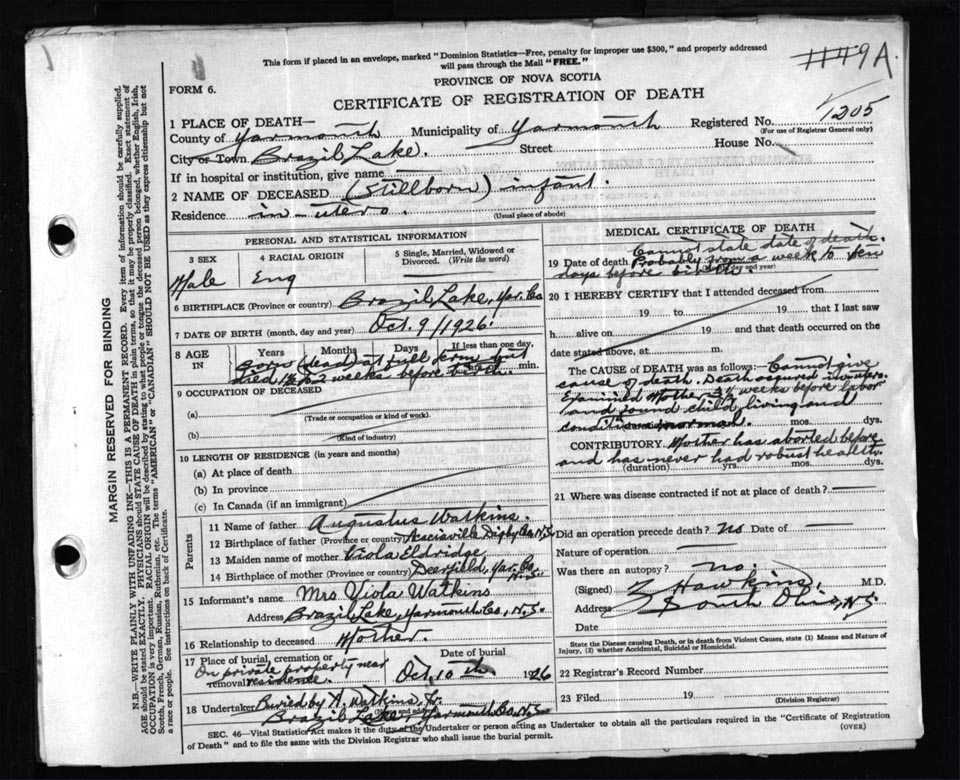 This form if placed in an envelope, marked "Dominion Statistics—Free, penalty for improper use $300," and properly addressed
will pass through the Mail "FREE."
#49A.
PROVINCE OF NOVA SCOTIA
FORM 6.
CERTIFICATE OF REGISTRATION OF DEATH
1 PLACE OF DEATH—
Registered No. 1205
(For use of Registrar General only)
County of Yarmouth Municipality of Yarmouth
City or Town Brazil Lake. Street House No.
If in hospital or institution, give name
2 NAME OF DECEASED (Stillborn) infant.
Residence in-utero.
(Usual place of abode)
PERSONAL AND STATISTICAL INFORMATION
3 SEX
4 RACIAL ORIGIN
5 Single, Married, Widowed or Divorced. (Write the word)
Male Eng
6 BIRTHPLACE (Province or country) Brazil Lake, Yar. Co
7 DATE OF BIRTH (month, day and year) Oct. 9/1926.
8 AGE IN
Years Months Days If less than one day,
Born (dead) at full term but
died 1 to 2 weeks before birth. min.
9 OCCUPATION OF DECEASED
(a)
(Trade or occupation or kind of work)
(b)
(Kind of industry)
10 LENGTH OF RESIDENCE (in years and months)
(a) At place of death
(b) In province
(c) In Canada (if an immigrant)
Parents
11 Name of father Augustus Watkins.
12 Birthplace of father (Province or country) Acaciaville Digby Co, N.S.
13 Maiden name of mother Viola Eldridge
14 Birthplace of mother (Province or country) Deerfield, Yar. Co. N.S.
15 Informant's name Mrs Viola Watkins
Address Brazil Lake, Yarmouth Co., N.S.
16 Relationship to deceased Mother.
17 Place of burial, cremation or removal
On private property near
residence.
Date of burial
Oct. 10 th 1926
18 Undertaker Buried by A. Watkins, Sr.
(Name and address)
Brazil Lake, Yarmouth Co., N.S.
MEDICAL CERTIFICATE OF DEATH
Cannot state date of death.
19 Date of death Probably from a week to ten
(Month, day and year)
days before birth.
20 I HEREBY CERTIFY that I attended deceased from
19 to 19 that I last saw
h alive on 19 and that death occurred on the
date stated above, at m.
The CAUSE of DEATH was as follows: Cannot give
cause of death. Death occurred in utero.
Examined Mother weeks before labor
and found child living and
conditions normal. mos. dys.
CONTRIBUTORY Mother has aborted before
and has never had robust health.
(duration) yrs. mos. dys.
21 Where was disease contracted if not at place of death? —
Did an operation precede death? No Date of —
Nature of operation —
Was there an autopsy? no.
(Signed) Z Hawkins, M.D.
Address South Ohio, N.S.
Date
State the Disease causing Death, or in death from Violent Causes, state (1) Means and Nature of
Injury, (2) whether Accidental, Suicidal or Homicidal.
22 Registrar's Record Number
23 Filed 19
(Division Registrar)
SEC. 46—Vital Statistics Act makes it the duty of the Undertaker or person acting as Undertaker to obtain all the particulars required in the "Certificate of Registration
of Death" and to file the same with the Division Registrar who shall issue the burial permit. (OVER)
MARGIN RESERVED FOR BINDING
N.B.—WRITE PLAINLY WITH UNFADING INK—THIS IS A PERMANENT RECORD. Every item of information should be carefully supplied.
AGE should be stated EXACTLY. PHYSICIANS should STATE CAUSE OF DEATH in plain terms, so that it may be properly classified. Exact statement of
OCCUPATION is very important. RACIAL ORIGIN will be described by stating to what people or tongue the deceased person belonged, whether English, Irish,
Scotch, French, German, Russian, Ruthenian, etc. The terms "AMERICAN" or "CANADIAN" SHOULD NOT BE USED as they express citizenship but not
a race or people. See instructions on back of Certificate.